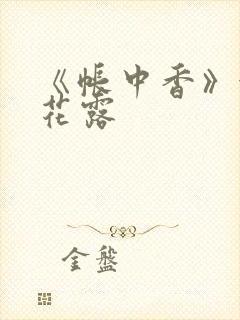 《帐中香》
花露
金盤